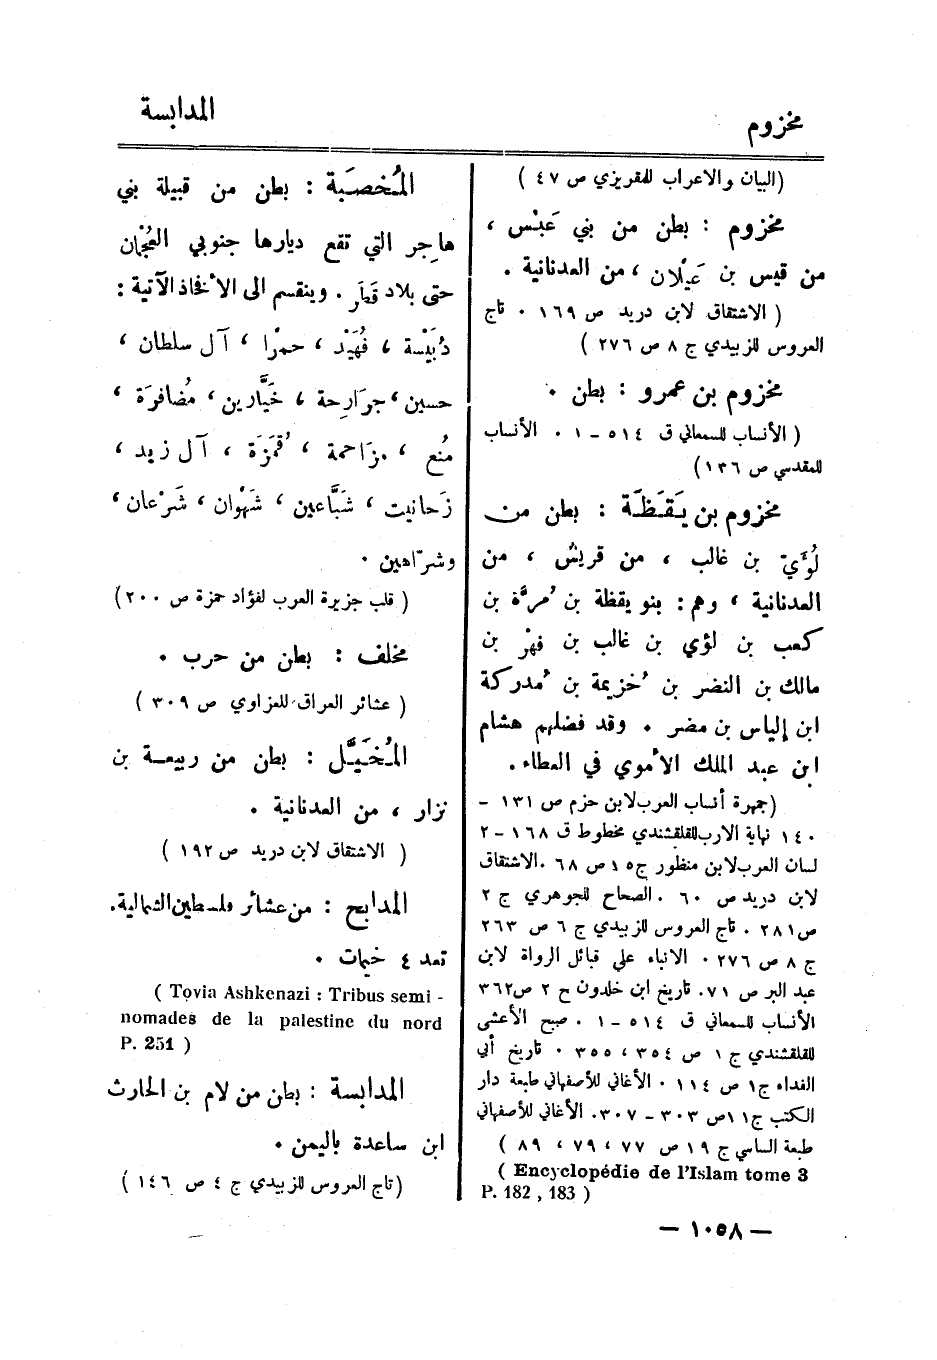 مخزوم
المدابسة
(البيان والاعراب للمقريزي ص ٤٧ )
مخزوم : بطن من بني عَبْس ،
من قيس بن عَيْلان ، من العدنانية .
( الاشتقاق لابن دريد ص ١٦٩ . تاج
العروس للزبيدي ج ٨ ص ٢٧٦ )
مخزوم بن عمرو : بطن .
( الأنساب للسمعاني ق ٥١٤ – ١ . الأنساب
للمقدسي ص ١٣٦)
مخزوم بن يَقَظَة : بطن من
لُؤَيّ بن غالب ، من قريش ، من
العدنانية ، وهم : بنو يقظة بن مُرَّة بن
كعب بن لؤي بن غالب بن فِهْر بن
مالك بن النضر بن خُزيمة بن مُدركة
ابن إلياس بن مضر . وقد فضلهم هشام
ابن عبد الملك الأموي في العطاء .
(جمهرة أنساب العرب لابن حزم ص ١٣١ –
١٤٠ نهاية الارب للقلقشندي مخطوط ق ١٦٨ – ٢
لسان العرب لابن منظور ج ١٥ ص ٦٨ . الاشتقاق
لابن دريد ص ٦٠ . الصحاح للجوهري ج ٢
ص ٢٨١ . تاج العروس للزبيدي ج ٦ ص ٢٦٣
ج ٨ ص ٢٧٦ . الانباء على قبائل الرواة لابن
عبد البر ص ٧١ . تاريخ ابن خلدون ج ٢ ص ٣٦٢
الأنساب للسمعاني ق ٥١٤ – ١ . صبح الأعشى
للقلقشندي ج ١ ص ٣٥٤ ، ٣٥٥ . تاريخ أبي
الفداء ج ١ ص ١١٤ . الأغاني للأصفهاني طبعة دار
الكتب ج ١١ ص ٣٠٣ – ٣٠٧ . الأغاني للأصفهاني
طبعة الساسي ج ١٩ ص ٧٧ ، ٧٩ ، ٨٩ )
( Encyclopédie de l'Islam tome 3
P. 182 , 183 )
المُخصَبة : بطن من قبيلة بني
هاجِر التي تقع ديارها جنوبي العُجْمان
حتى بلاد قَطَر . وينقسم الى الأفخاذ الآتية :
دُبَيْسة ، فُهَيْد ، حمرا ، آل سلطان ،
حسين ، جرَارِحة ، خَيَّارين ، مُضافرَة ،
مُنع ، مزَاحمة ، قُمَزَة ، آل زيد ،
زَحانيت ، شَبَّاعين ، شَهْوان ، شَرْعان ،
وشرَاهين .
( قلب جزيرة العرب لفؤاد حمزة ص ٢٠٠)
مخلف : بطن من حرب .
( عشائر العراق للعزاوي ص ٣٠٩ )
المُخَيَّل : بطن من ربيعة بن
نزار ، من العدنانية .
( الاشتقاق لابن دريد ص ١٩٢ )
المدابح : من عشائر فلسطين الشمالية.
تعد ٤ خيمات .
( Tovia Ashkenazi : Tribus semi -
nomades de la palestine du nord
P. 251 )
المدابسة : بطن من لام بن الحارث
ابن ساعدة باليمن .
(تاج العروس للزبيدي ج ٤ ص ١٤٦ )
— ١٠٥٨ —